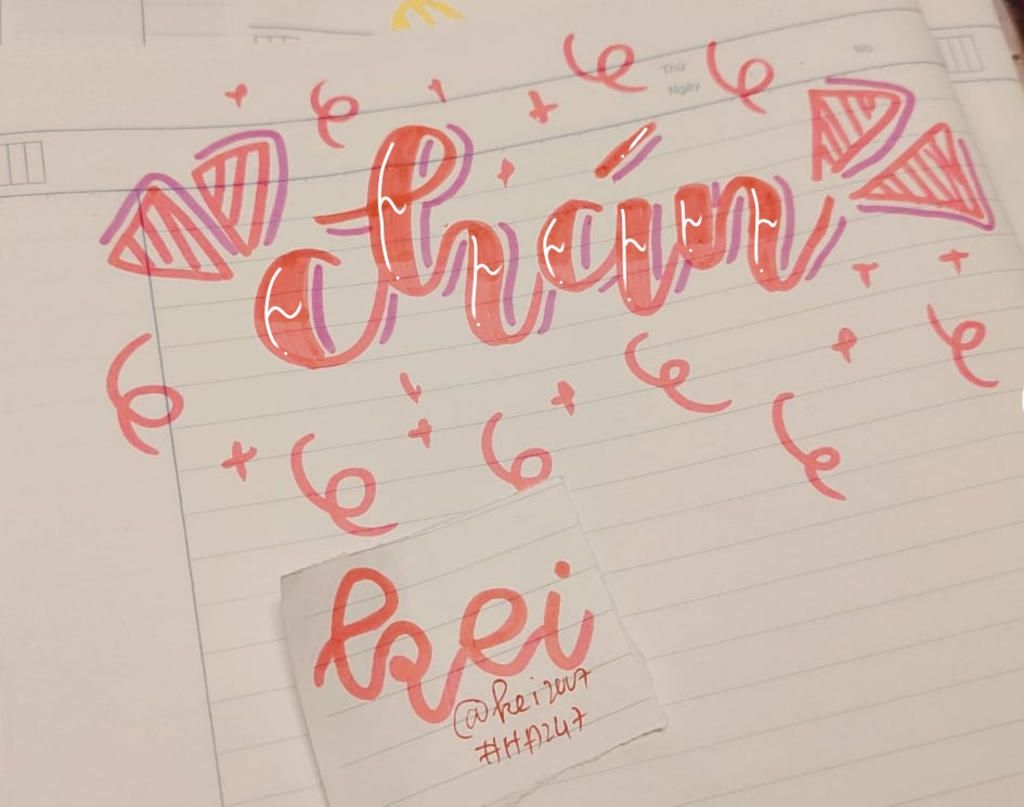 No:
Thứ
Ngày
chán
kei
@kei2007
#HA247